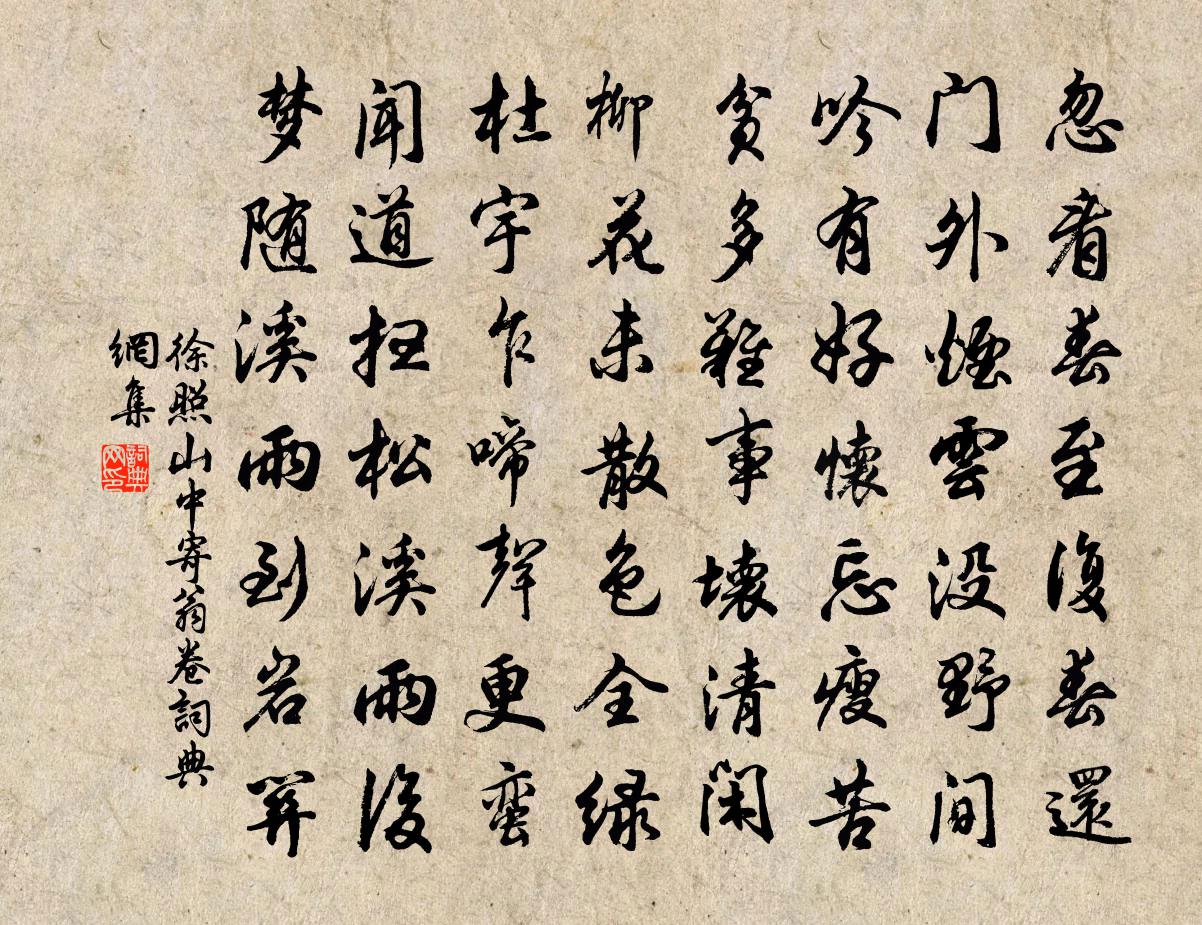 忽看春至復春還
门外煙雲没野间
吟有好懷忘瘦苦
貧多難事壞清闲
柳花未散色全绿
杜宇乍啼聲更蛮
闻道扫松溪雨後
梦随溪雨到岩关
徐照山中寄翁卷詞典
網集
詞典
网印